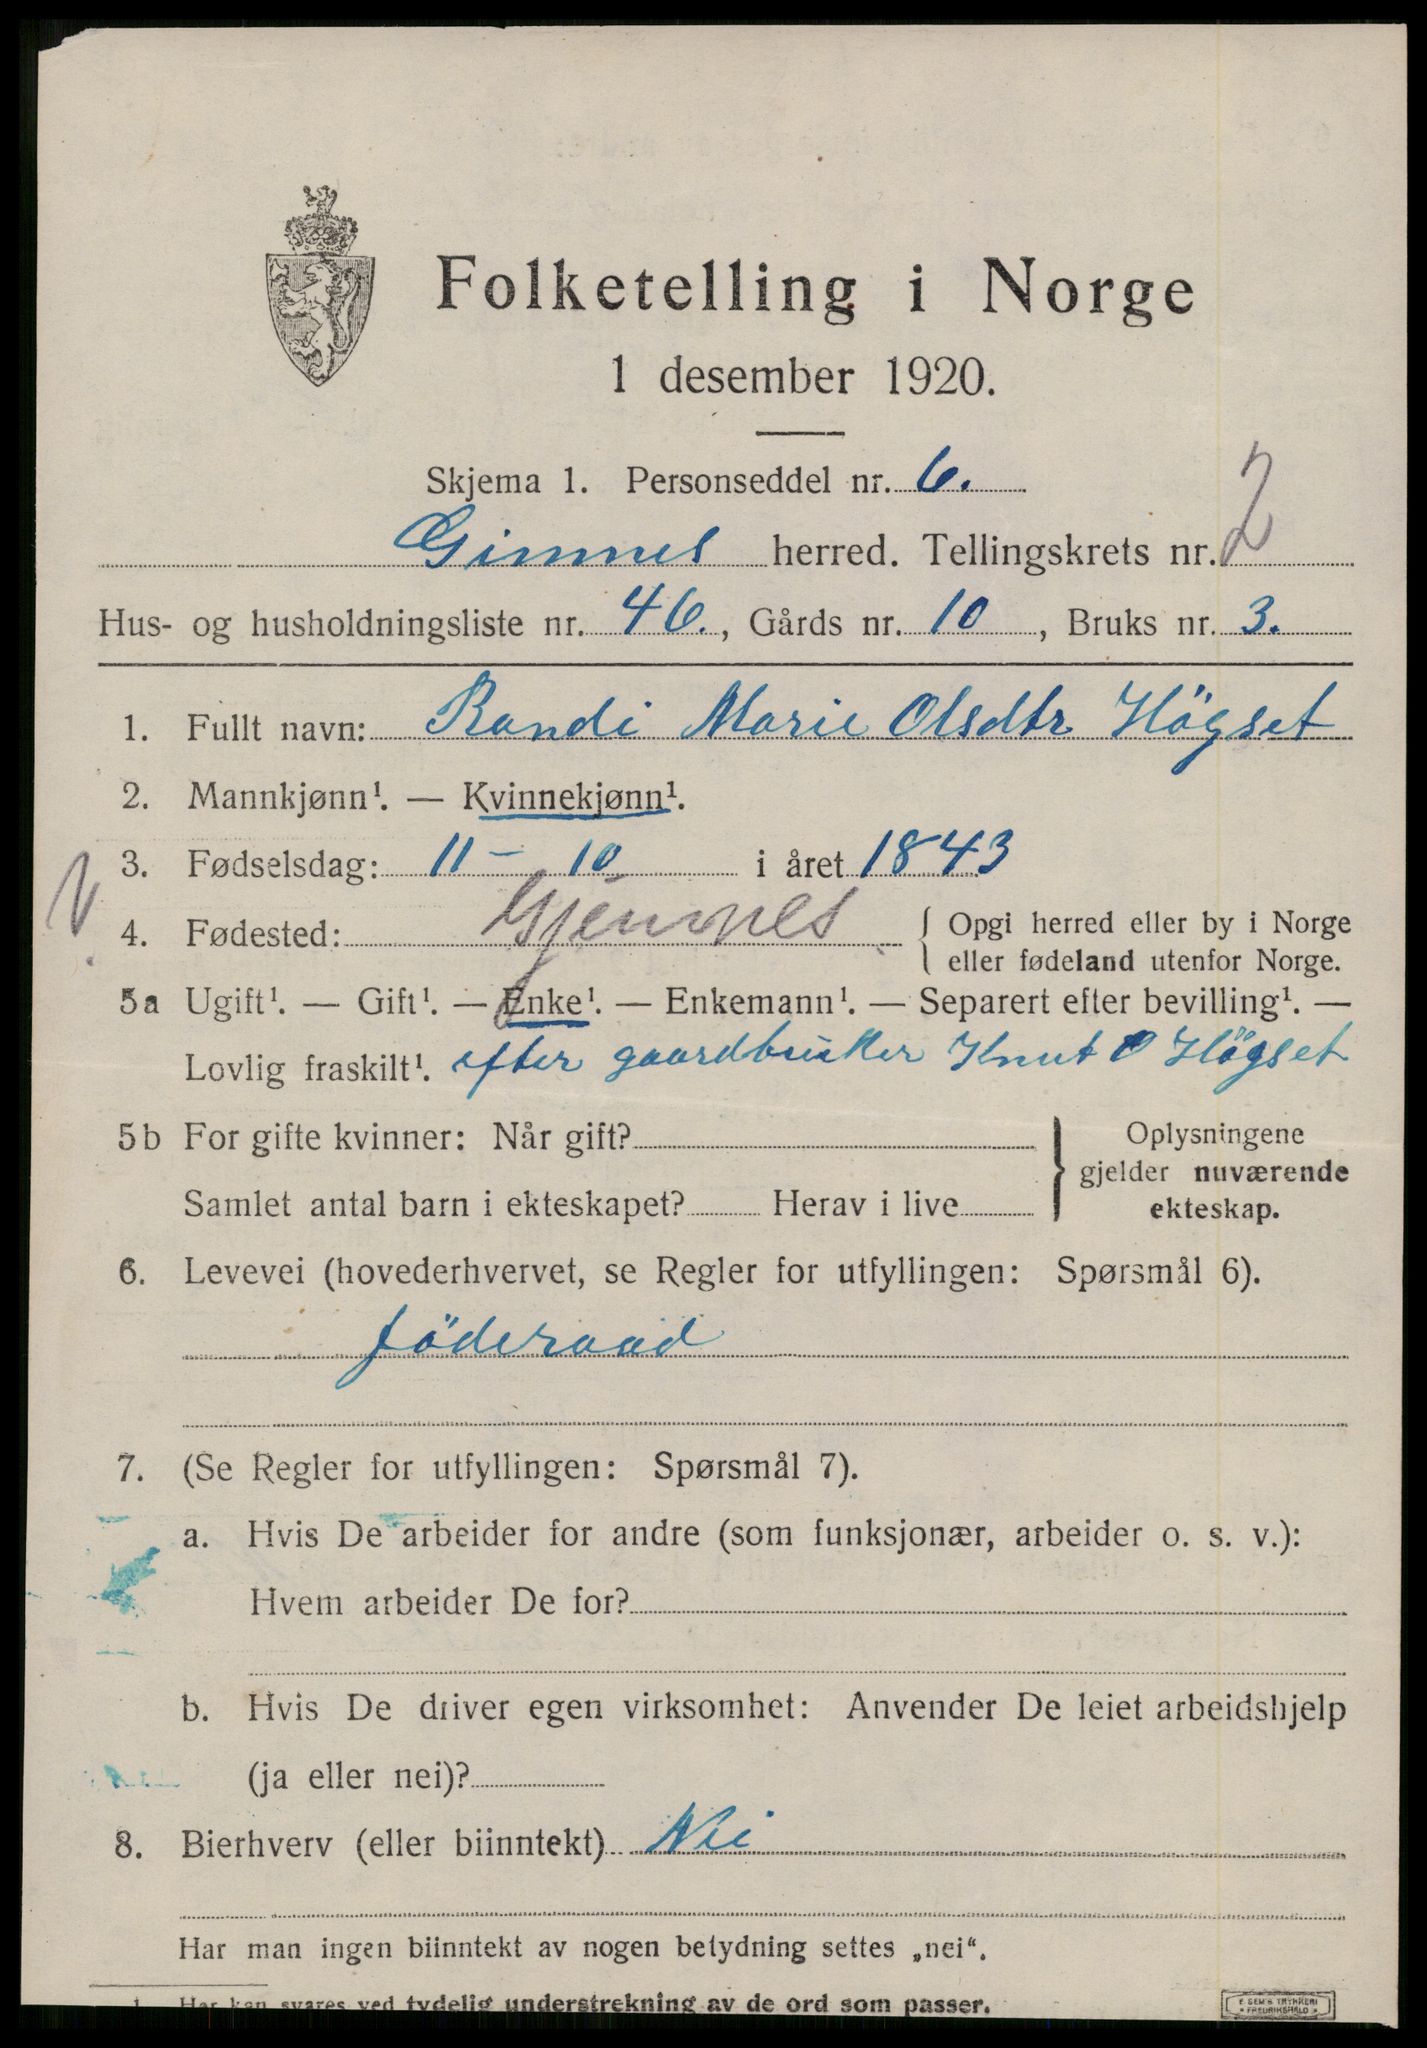 Folketelling i Norge
1 desember 1920.
Skjema 1. Personseddel nr. 6.
Gimnes herred. Tellingskrets nr. 2
Hus- og husholdningsliste nr. 46., Gårds nr. 10, Bruks nr. 3.
1. Fullt navn: Randi Marie Olsdtr Högset
2. Mannkjønn¹. — Kvinnekjønn¹.
3. Fødselsdag: 11 - 10 i året 1843
4. Fødested: Gjemnes { Opgi herred eller by i Norge
eller fødeland utenfor Norge.
5a Ugift¹. — Gift¹. — Enke¹. — Enkemann¹. — Separert efter bevilling¹. —
Lovlig fraskilt¹. efter gaardbruker Knut O Högset
5b For gifte kvinner: Når gift? } Oplysningene
gjelder nuværende
Samlet antal barn i ekteskapet? Herav i live ekteskap.
6. Levevei (hovederhvervet, se Regler for utfyllingen: Spørsmål 6).
föderaad
7. (Se Regler for utfyllingen: Spørsmål 7).
a. Hvis De arbeider for andre (som funksjonær, arbeider o. s. v.):
Hvem arbeider De for?
b. Hvis De driver egen virksomhet: Anvender De leiet arbeidshjelp
(ja eller nei)?
8. Bierhverv (eller biinntekt) Nei
Har man ingen biinntekt av nogen betydning settes „nei“.
1 Har kan svares ved tydelig understrekning av de ord som passer.
E SEM'S TRYKKERI
FREDRIKSHALD